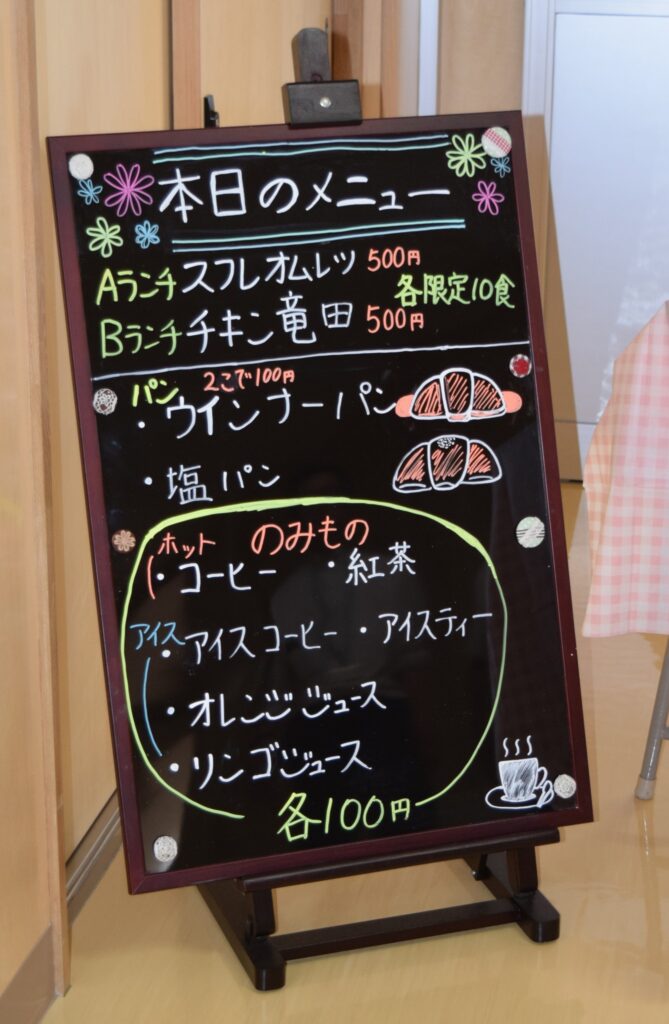 本日のメニュー
Aランチ スフレオムレツ 500円
各限定10食
Bランチ チキン竜田 500円
パン 2こで100円
・ウインナーパン
・塩パン
ホット のみもの
・コーヒー ・紅茶
アイス
・アイスコーヒー ・アイスティー
・オレンジジュース
・リンゴジュース
各100円